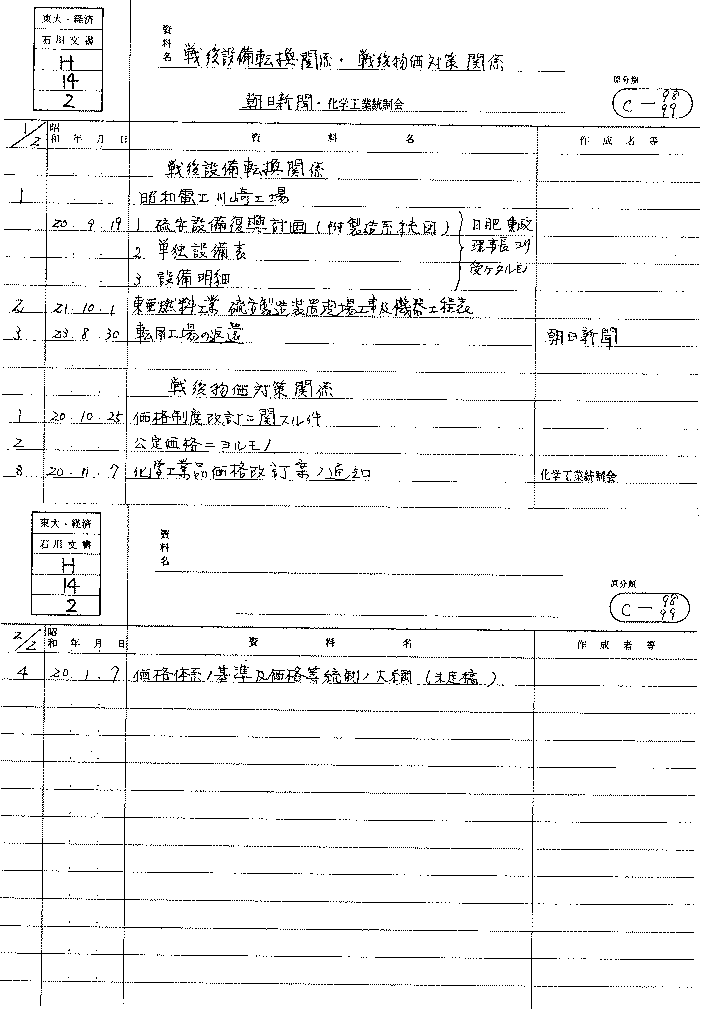 東大・経済
石川文書
H
14
2
資料名 戦後設備転換関係・戦後物価対策関係
朝日新聞・化学工業統制会
原分類
C－98 99
1/2 昭和 年 月 日 資料名 作成者等
戦後設備転換関係
1 昭和電工川崎工場
20.9.19 1 硫安設備復興計画(附製造系統図)
2 単独設備表
3 設備明細
日肥
理事長ヨリ
受ケタルモノ
2 21.10.1 東亜燃料工業 硫安製造装置現場工事及機器工程表
3 23.8.30 転用工場の返還 朝日新聞
戦後物価対策関係
1 20.10.25 価格制度改訂ニ関スル件
2 公定価格ニヨルモノ
3 20.11.7 化学工業品価格改訂案ノ通知 化学工業統制会
東大・経済
石川文書
H
14
2
資料名
原分類
C－98 99
2/2 昭和 年 月 日 資料名 作成者等
4 20.1.7 価格体系ノ基準及価格等統制ノ大綱(未定稿)